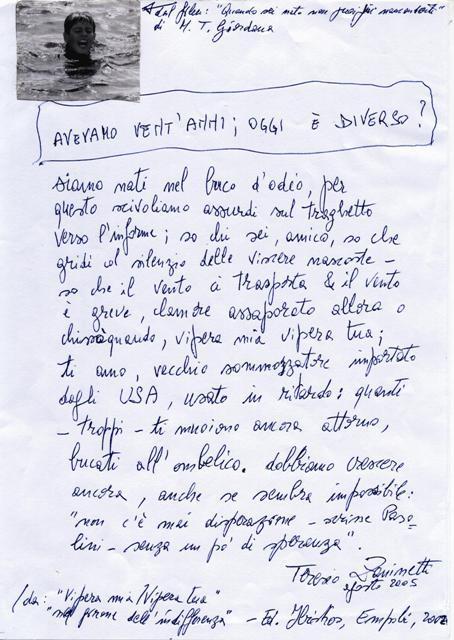 dal film: "Quando sei nato non puoi più nasconderti"
di M. T. Giordana
AVEVAMO VENT'ANNI; OGGI È DIVERSO?
siamo nati nel buco d'odio, per
questo scivoliamo assurdi sul traghetto
verso l'informe; so chi sei, amica, so che
gridi al silenzio delle viscere nascoste –
so che il vento ci trasporta & il vento
è greve, clamore assaporato allora o
chissàquando, vipera mia vipera tua;
ti amo, vecchio sommozzatore importato
dagli USA, usato in ritardo: quanti
– troppi – ti muoiono ancora attorno,
bucati all'ombelico. dobbiamo crescere
ancora, anche se sembra impossibile:
"non c'è mai disperazione – scrisse Paso-
lini – senza un po' di speranza".
Teresio Zaninetti
agosto 2005
(da: "Vipera mia / Vipera tua"
"nel girone dell'indifferenza" – Ed. Ibiskos, Empoli,